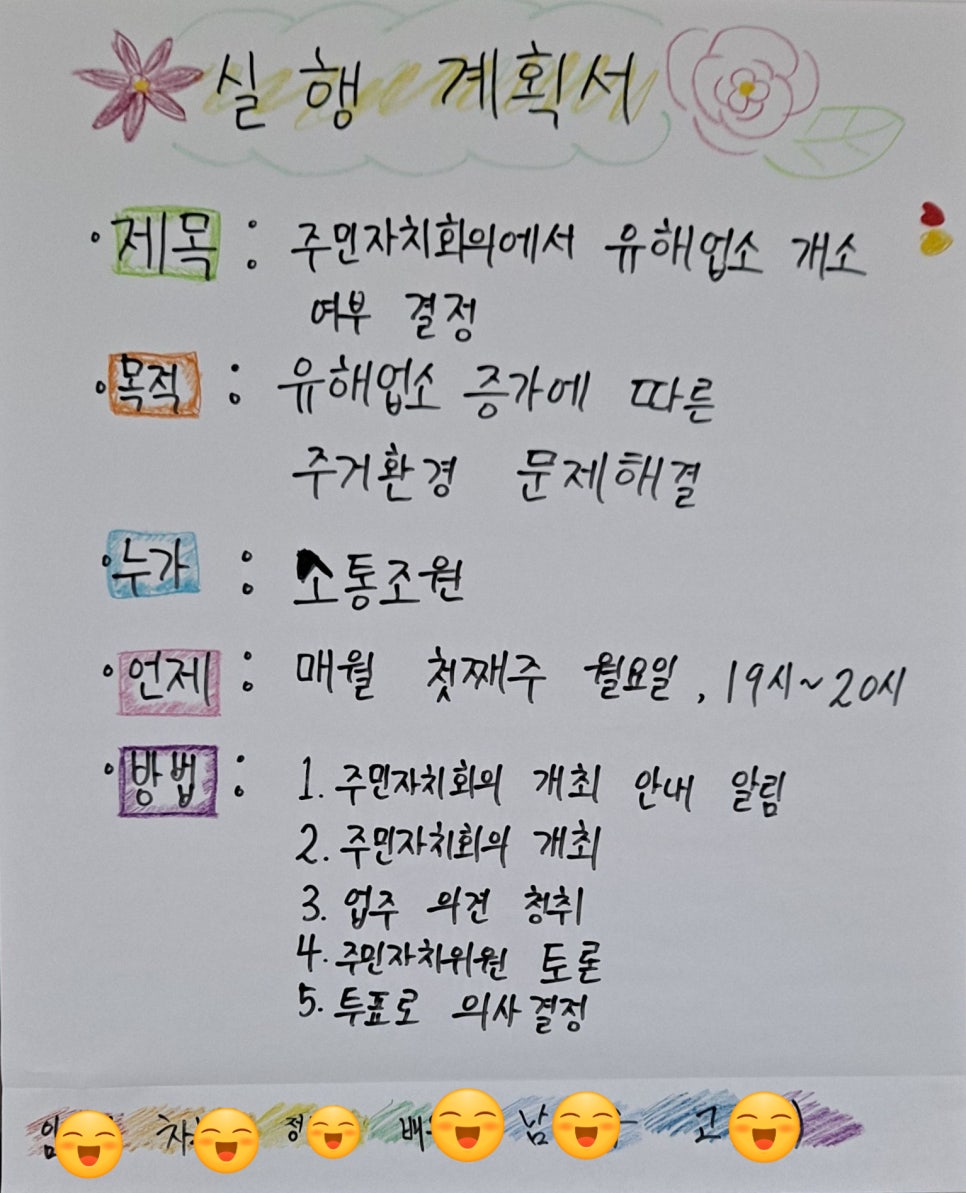 실행 계획서
· 제목 : 주민자치회의에서 유해업소 개소
여부 결정
· 목적 : 유해업소 증가에 따른
주거환경 문제해결
· 누가 : 소통조원
· 언제 : 매월 첫째주 월요일, 19시~20시
· 방법 : 1. 주민자치회의 개최 안내 알림
2. 주민자치회의 개최
3. 업주 의견 청취
4. 주민자치위원 토론
5. 투표로 의사결정
임 차 정 배 남 고 )